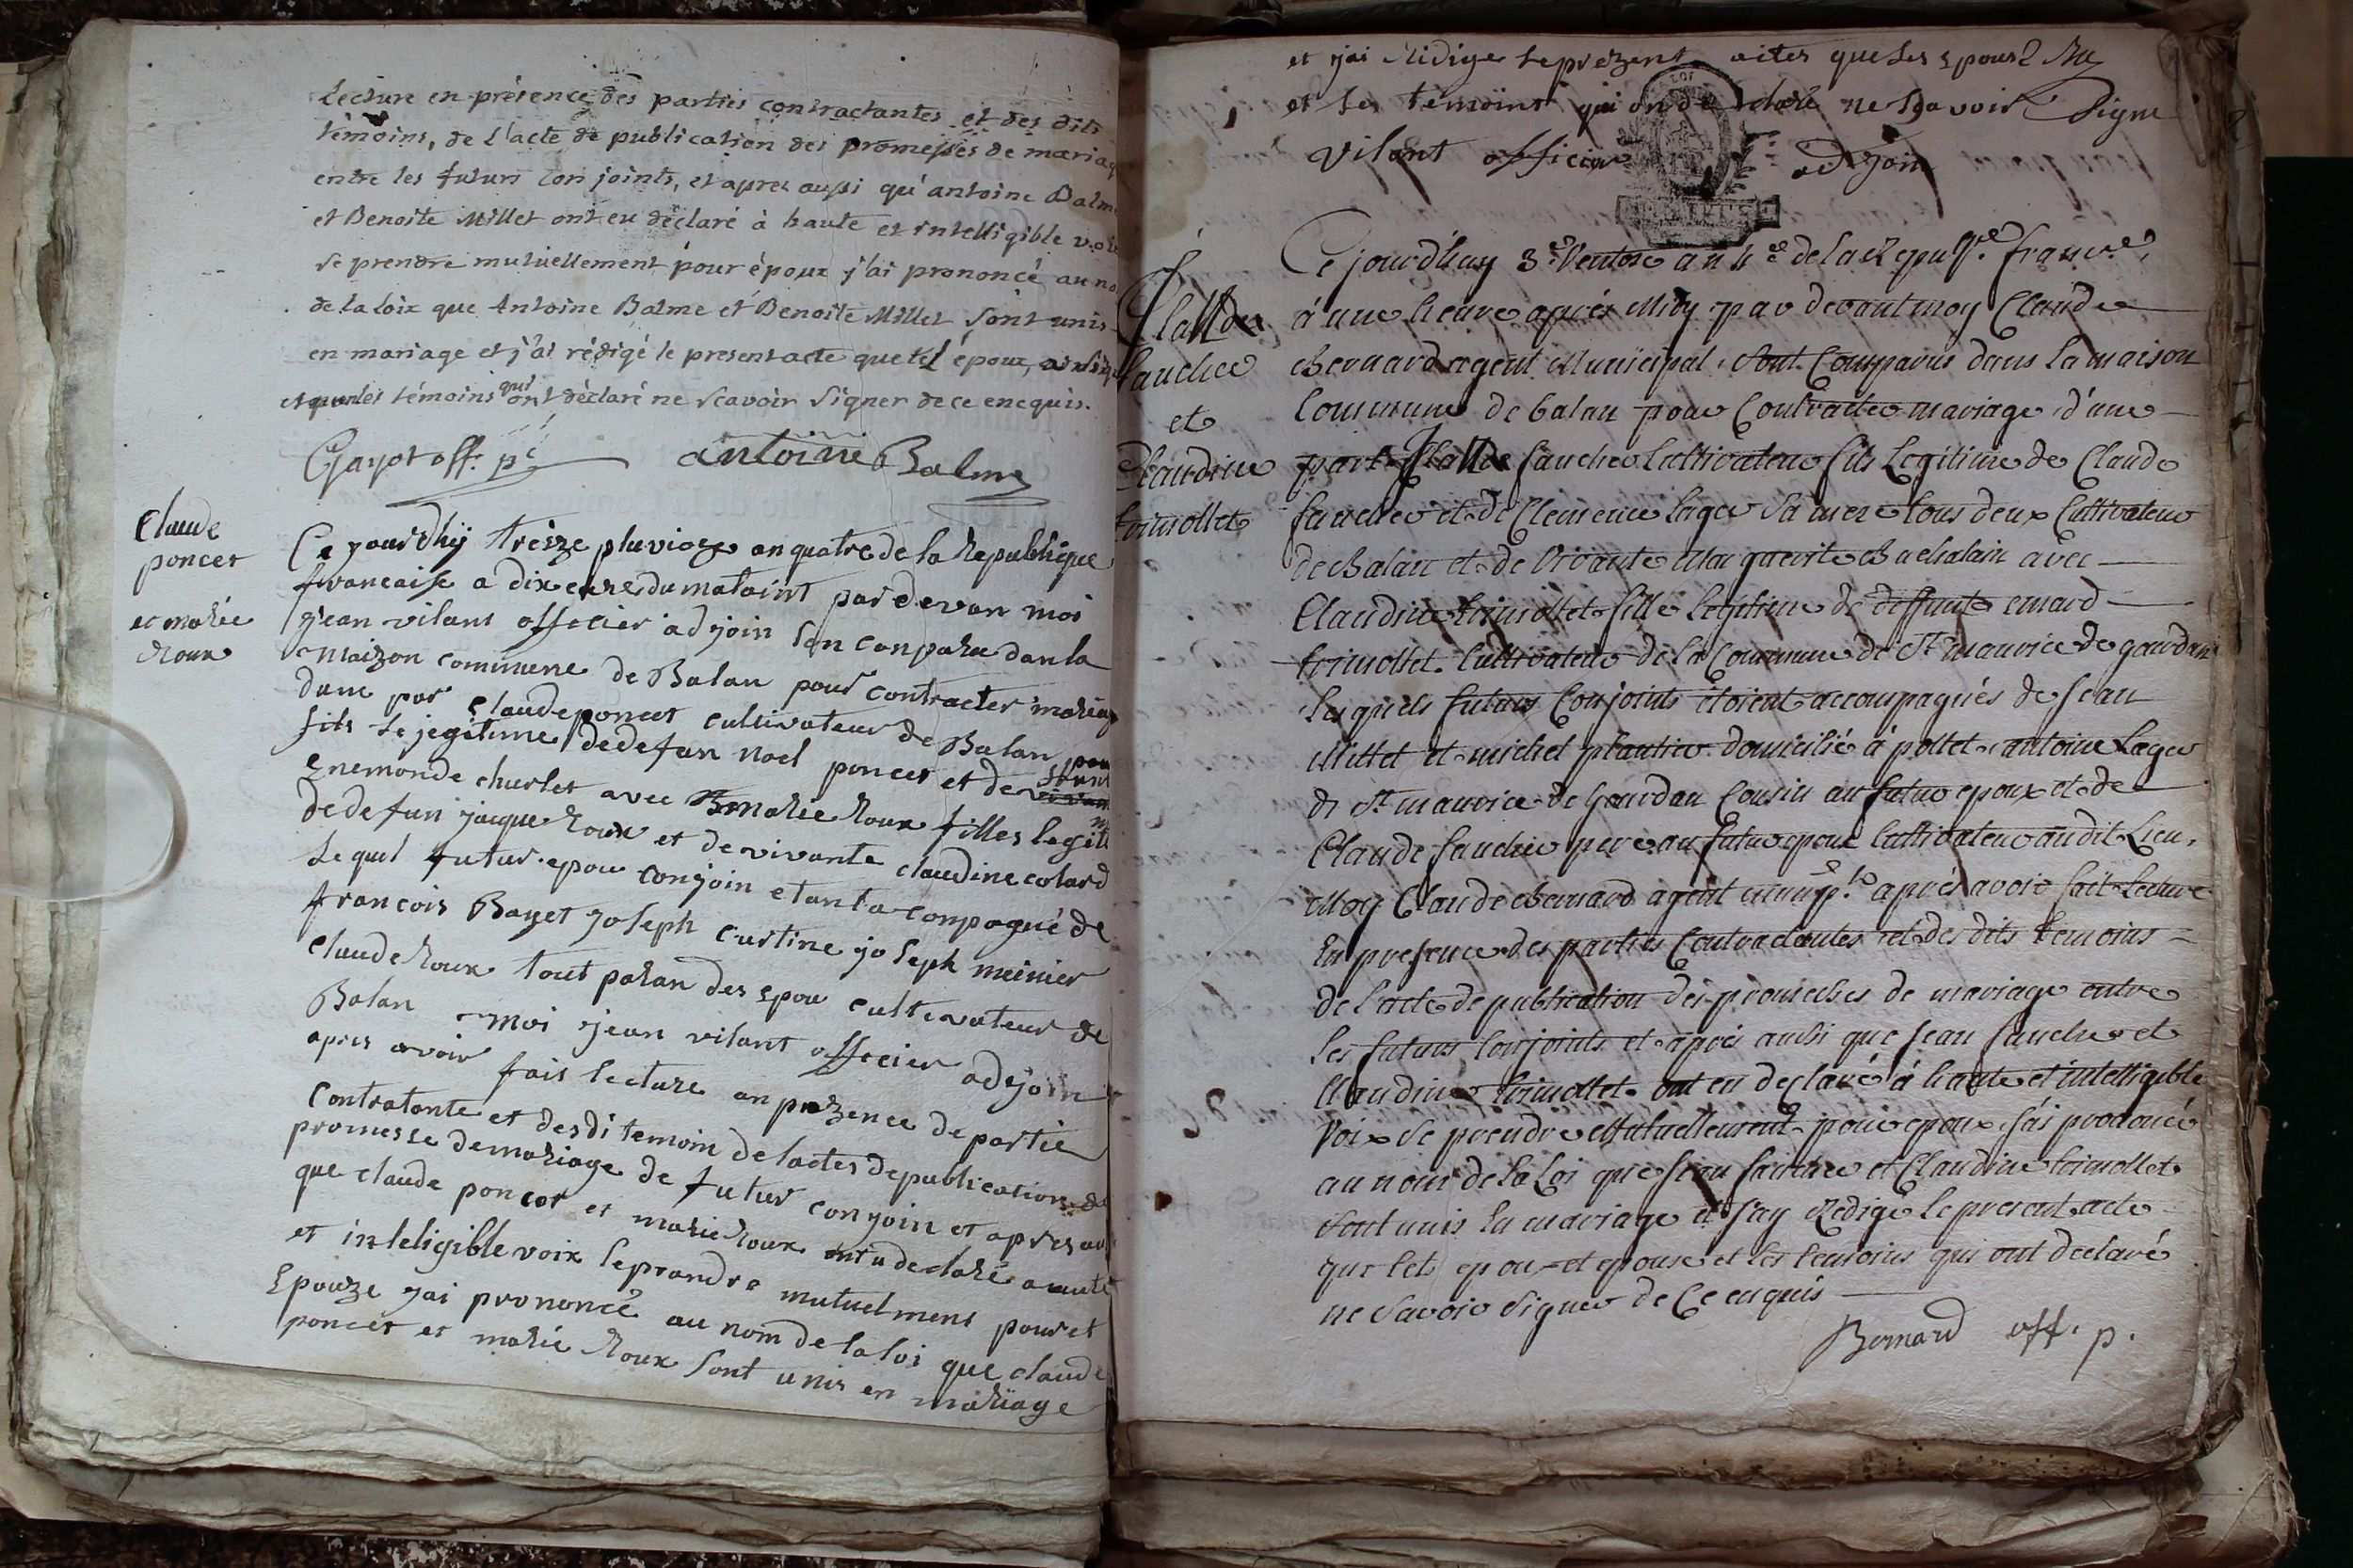 Lecture en présence des parties contractantes et des dits
témoins, de l'acte de publication des promesses de mariag
entre les futurs conjoints, et apres aussi qu'antoine Balm
et Benoite Millet ont eu déclaré à haute et intelligible voix
se prendre mutuellement pour époux j'ai prononcé au no
de la loix que Antoine Balme et Benoite Millet sont unis
en mariage et j'ai rédigé le present acte que lel époux, ainsi que
les témoins qui ont déclaré ne Scavoir Signer de ce enequis.
Gayot off. p.
antoine Balme
Claude
poncet
et marie
Roux
Ce yourdhÿ treize pluvioze an quatre de la Republique
francaise a dix eure du matoint par devan moi
jean vilant officier adjoin son conparu dan la
maizon commune de Balan pour contracter mariag
dune par claude poncet cultivateur de Balan
fils lejegitime de defun noel poncet et de
Enemonde churlet avec marie Roux filles legiti
de defun jacque Roux et de vivante claudine colard
Lequel futur epou conjoin etant aconpagné de
francois Bayet joseph Custine joseph meinier
claude Roux tout paran des epou cultivateur de
Balan moi jean vilant officier adejoin
apres avoir fais lecture an prezence de partie
contratante et desdi temoin de lactes depublication de
promesse demariage de futur conjoin et apres au
que claude poncet et marie Roux ont u declaré a aute
et inteligible voix seprandre mutuelment pour et
Epouze jai prononcé au nom de la loi que claude
poncet et marié Roux sont unis en mariage
et jai Rédige le prezent actes que les epous
et les témoins qui on declaré ne Savoir Signe
vilant officier adjoin
Claude
faucher
et
Claudine
toimollet
Ce jourd'huy 3e. Ventose an 4e de la Republ.e franc.e,
á une heure après Midy par devant moy Claude
Bernard agent Municipal, sont Comparus dans la maison
Commune de balan pour Contracter mariage d'une
part Claude faucher Cultivateur fils Legitime de Claude
faucher et de Clemence lager Sa mere tous deux Cultivateur
de Balan et de Vivante Marguerite Bachalain avec
Claudine toimollet fille legitime de deffunt emard
toimollet Cultivateur de la Commune de St maurice de gourdan
lesquels futurs Conjoints étoient accompagnés de jean
Millet et michel plantier domicilié á pollet, antoine Lager
de St maurice de Gourdan Cousin au futur epoux et de
Claude faucher pere au futur epoux Cultivateur audit Lieu,
Moy Claude Bernard agent munip.l après avoir fait lecture
En presence des parties Contractantes et des dits temoins
de l'acte de publication des promesses de mariage entre
les futurs Conjoints et après aussi que jean faucher et
Claudine toimollet ont eu declaré á haute et intelligible
Voix se prendre Mutuellement pour epoux j'ai prononcé
au nom de la Loi que jean faucher et Claudine toimollet
sont unis en mariage et j'ay Redigé le present acte
que let epoux et epouse et les temoins qui ont declaré
ne Savoir Signer de Ce enquis
Bernard off. p.